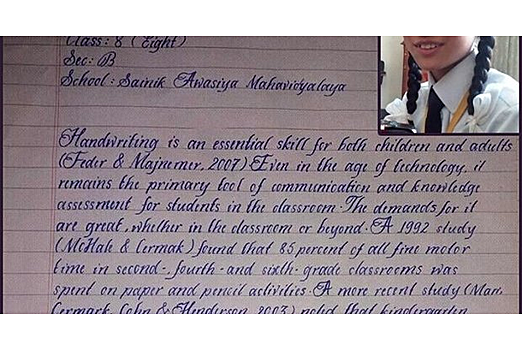 Class: 8 (Eight)
Sec: B
School: Sainik Awasiya Mahavidyalaya
Handwriting is an essential skill for both children and adults
(Feder & Majnemer, 2007) Even in the age of technology, it
remains the primary tool of communication and knowledge
assessment for students in the classroom. The demands for it
are great, whether in the classroom or beyond. A 1992 study
(McHale & Cermak) found that 85 percent of all fine motor
time in second-, fourth- and sixth- grade classrooms was
spent on paper and pencil activities. A more recent study (Marr,
Cermak, Cohn & Henderson, 2003) noted that kindergarten